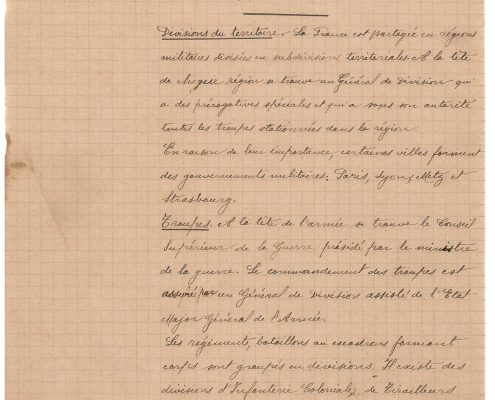 Divisions du territoire. La France est partagée en régions
militaires divisées en subdivisions territoriales. A la tête
de chaque région se trouve un Général de Division qui
a des prérogatives spéciales et qui a sous son autorité
toutes les troupes stationnées dans la région.
En raison de leur importance, certaines villes forment
des gouvernements militaires; Paris, Lyon, Metz et
Strasbourg.
Troupes. A la tête de l'armée se trouve le Conseil
Supérieur de la Guerre présidé par le ministre
de la guerre. Le commandement des troupes est
assuré par un Général de Division assisté de l'Etat
Major Général de l'Armée.
Les régiments, bataillons ou escadrons formant
corps sont groupés en divisions. Il existe des
divisions d'Infanterie Coloniale, de Tirailleurs